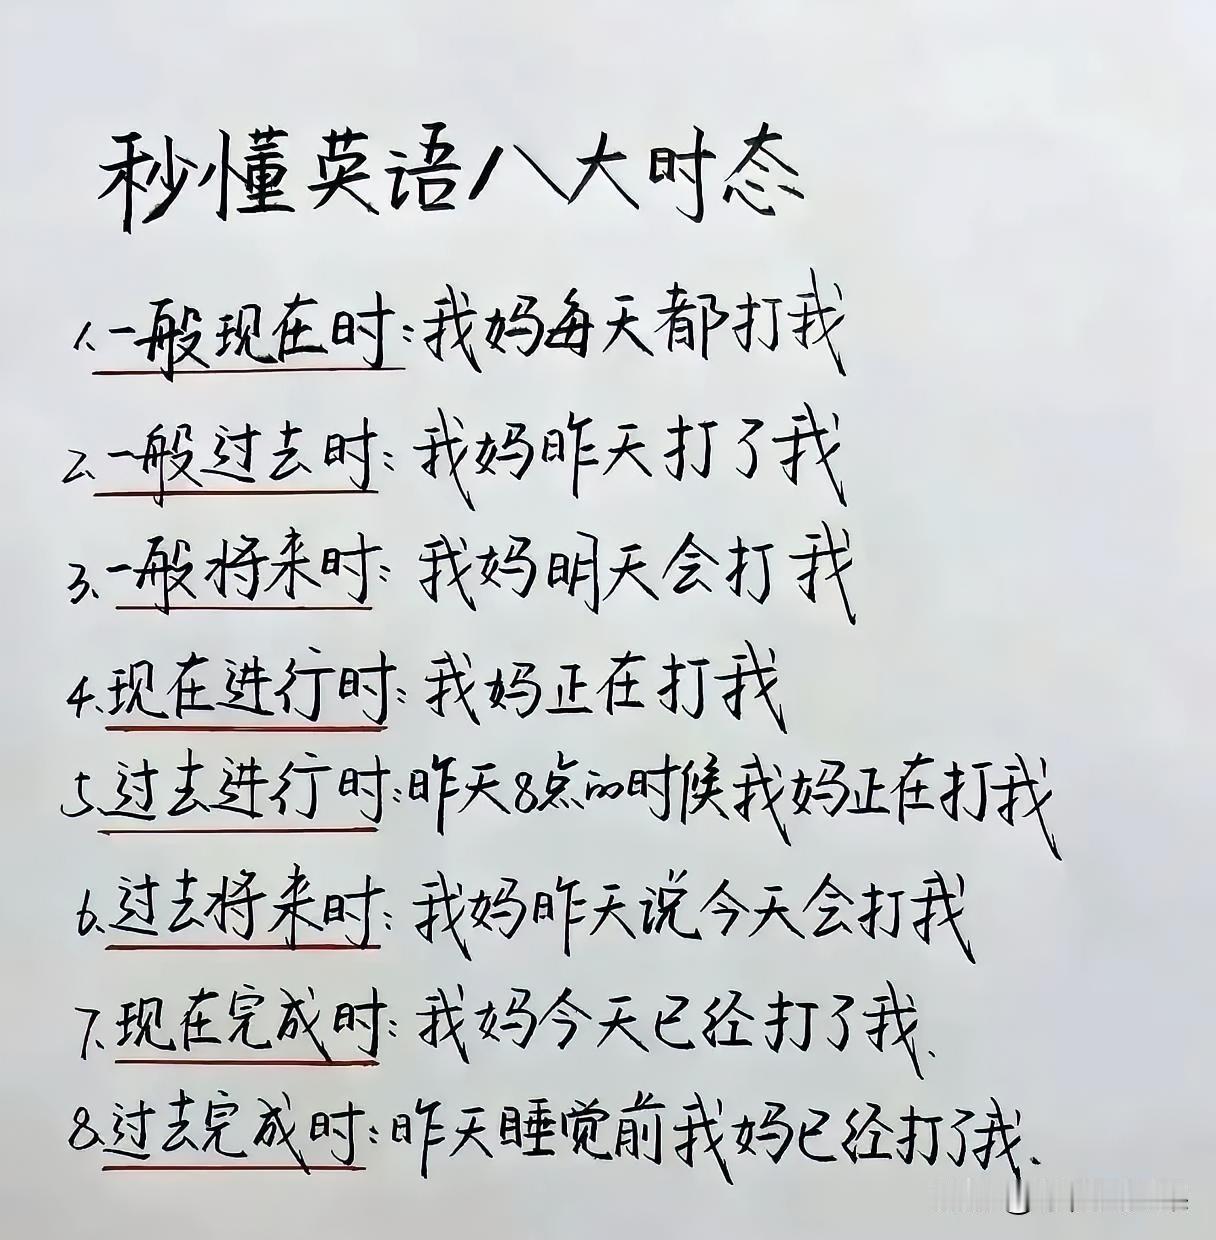 秒懂英语八大时态
1.一般现在时:我妈每天都打我
2.一般过去时:我妈昨天打了我
3.一般将来时:我妈明天会打我
4.现在进行时:我妈正在打我
5.过去进行时:昨天8点的时候我妈正在打我
6.过去将来时:我妈昨天说今天会打我
7.现在完成时:我妈今天已经打了我.
8.过去完成时:昨天睡觉前我妈已经打了我.